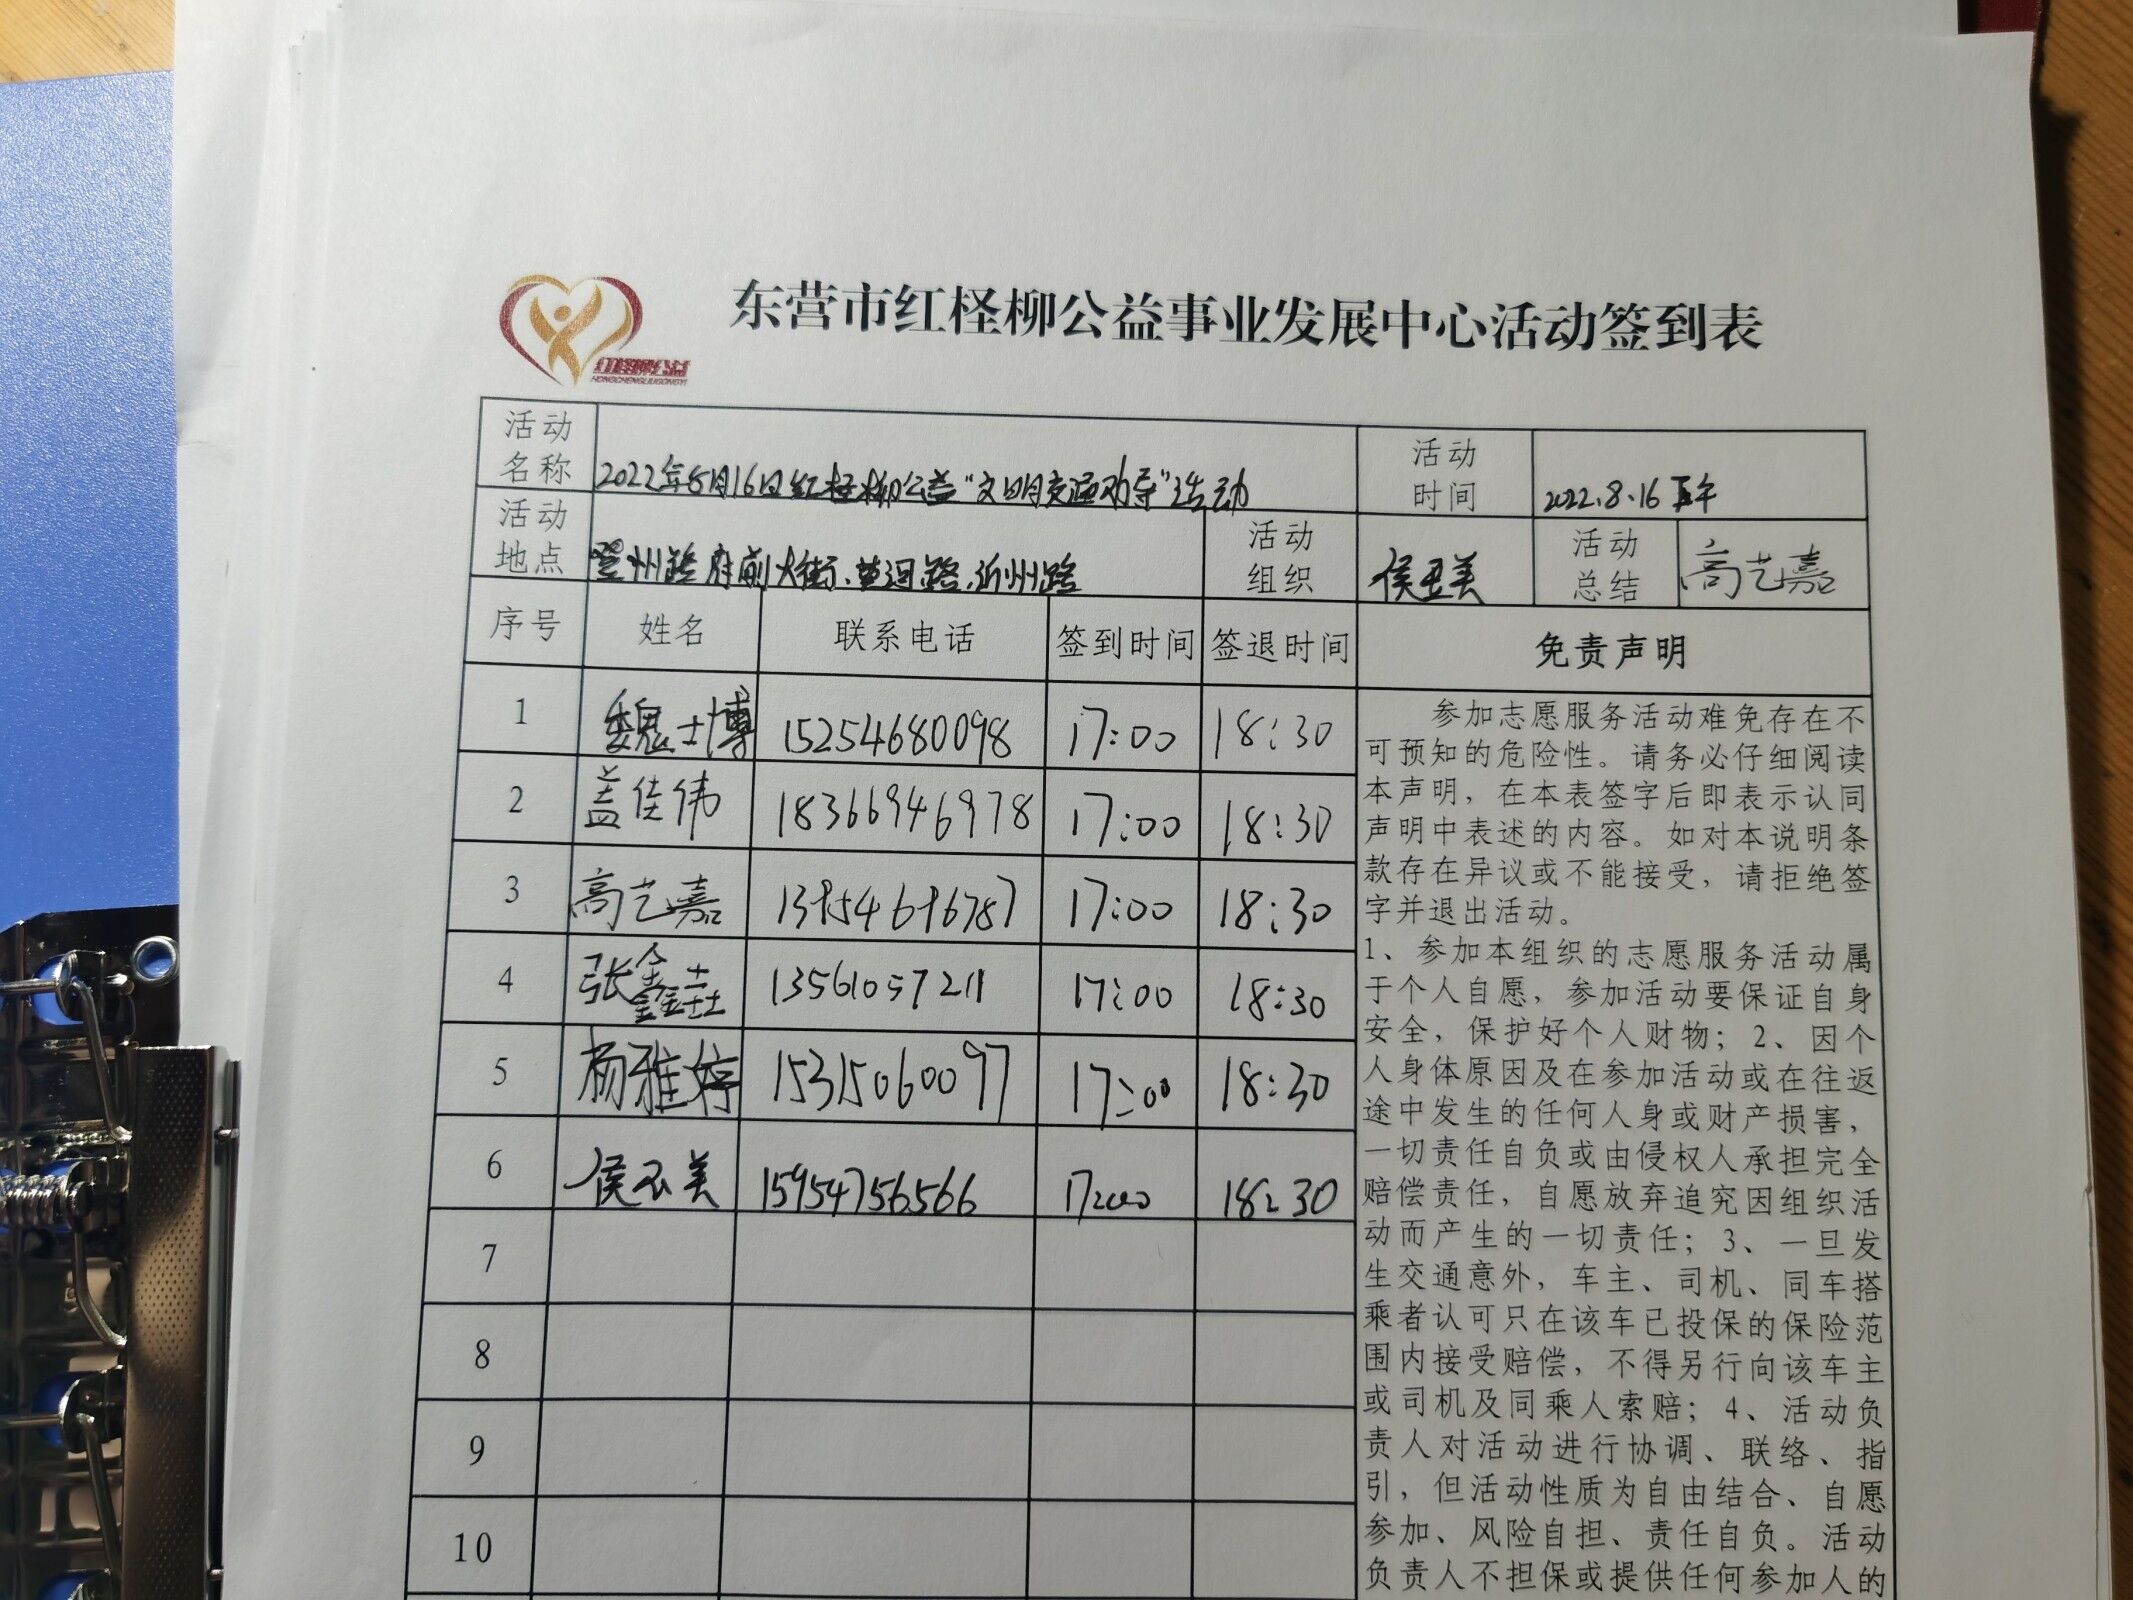 东营市红柽柳公益事业发展中心活动签到表
红柽柳公益
HONGCHENGLIUGONGYI
活动名称 2022年8月16日红柽柳公益“文明交通劝导”活动 活动时间 2022.8.16 下午
活动地点 登州路府前大街、黄河路、沂州路 活动组织 侯玉美 活动总结 高艺嘉
序号 姓名 联系电话 签到时间 签退时间 免责声明
1 魏士博 15254680098 17:00 18:30
2 盖佳伟 18366946978 17:00 18:30
3 高艺嘉 13954696787 17:00 18:30
4 张鑫 13561057211 17:00 18:30
5 杨雅婷 15315060097 17:00 18:30
6 侯玉美 15954756566 17:00 18:30
7
8
9
10
参加志愿服务活动难免存在不
可预知的危险性。请务必仔细阅读
本声明，在本表签字后即表示认同
声明中表述的内容。如对本说明条
款存在异议或不能接受，请拒绝签
字并退出活动。
1、参加本组织的志愿服务活动属
于个人自愿，参加活动要保证自身
安全，保护好个人财物；2、因个
人身体原因及在参加活动或在往返
途中发生的任何人身或财产损害，
一切责任自负或由侵权人承担完全
赔偿责任，自愿放弃追究因组织活
动而产生的一切责任；3、一旦发
生交通意外，车主、司机、同车搭
乘者认可只在该车已投保的保险范
围内接受赔偿，不得另行向该车主
或司机及同乘人索赔；4、活动负
责人对活动进行协调、联络、指
引，但活动性质为自由结合、自愿
参加、风险自担、责任自负。活动
负责人不担保或提供任何参加人的